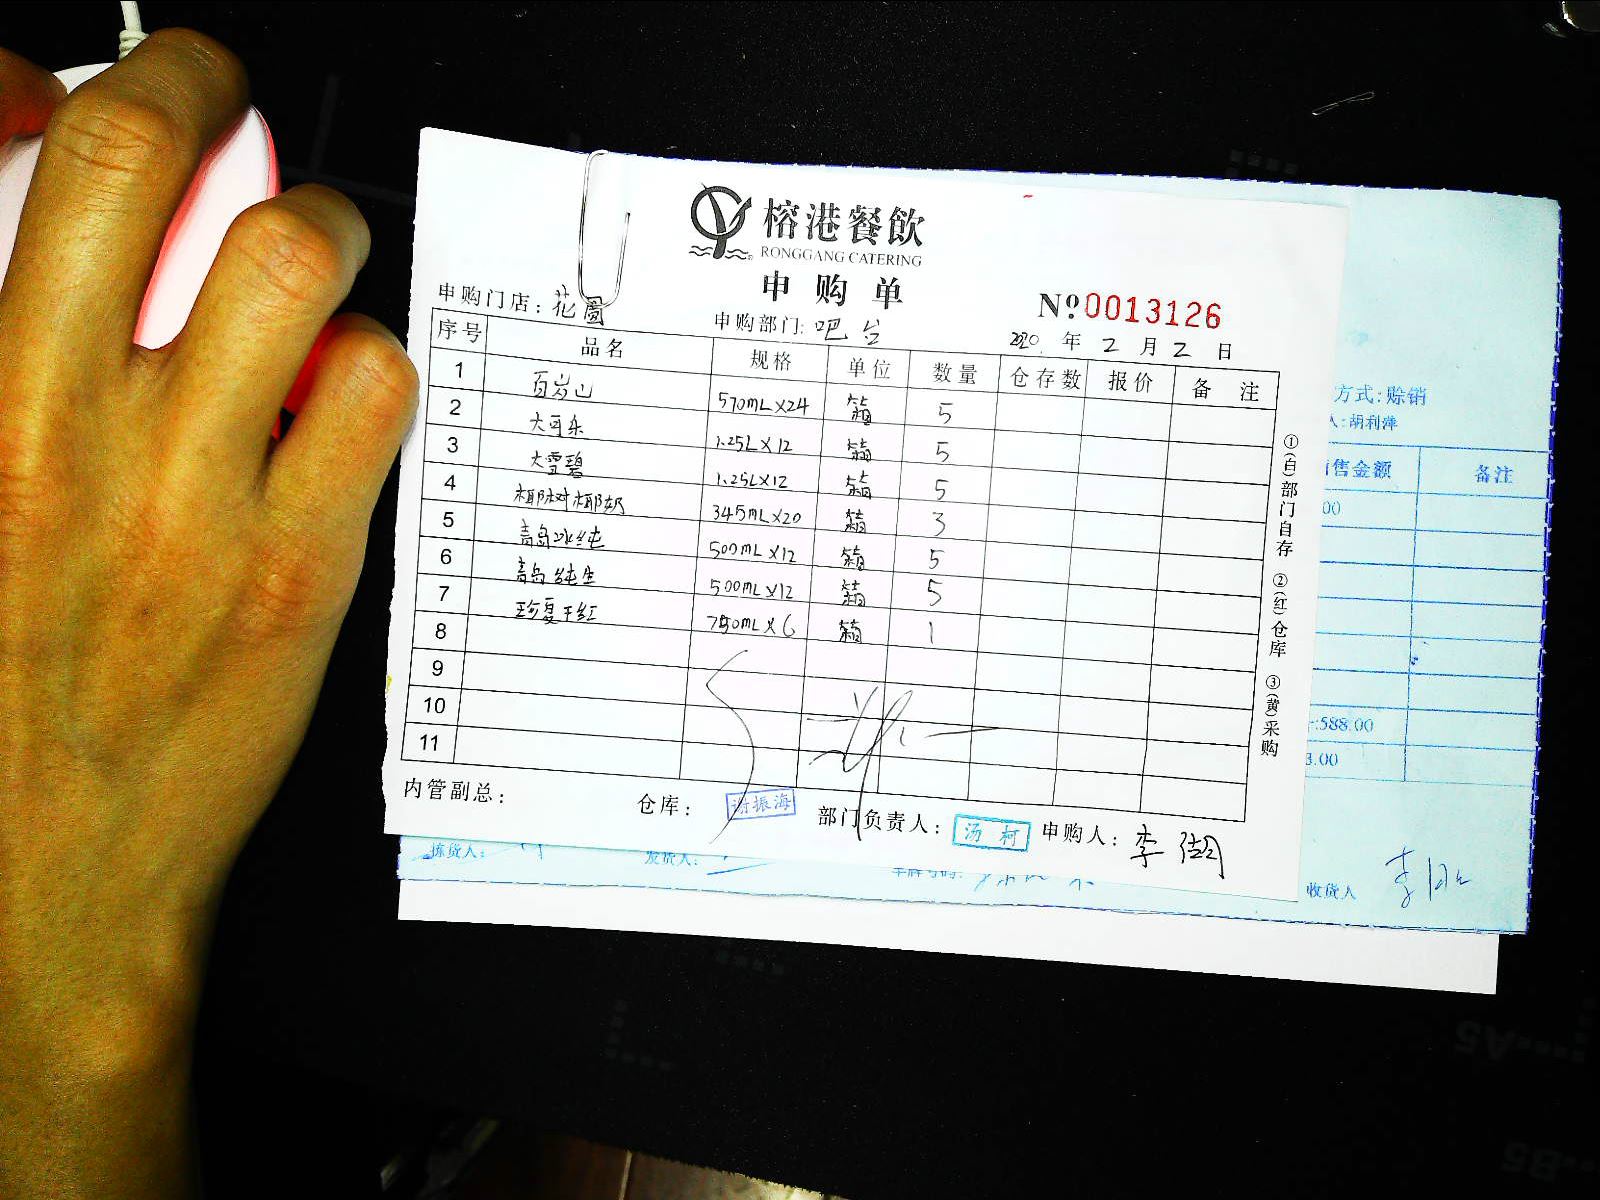 榕港餐飲
RONGGANG CATERING
申购单
申购门店:花園
申购部门:吧台
Nº0013126
2020年2月2日
序号 品名 规格 单位 数量 仓存数 报价 备注
1 百岁山 570mL×24 箱 5
2 大可乐 1.25L×12 箱 5
3 大雪碧 1.25L×12 箱 5
4 椰树椰奶 345mL×20 箱 3
5 青岛冰纯 500mL×12 箱 5
6 青岛纯生 500mL×12 箱 5
7 珍复干红 750mL×6 箱 1
8
9
10
11
①(白)部门自存 ②(红)仓库 ③(黄)采购
内管副总: 仓库: 谢振海 部门负责人: 汤柯 申购人: 李
方式:赊销
人:胡利萍
售金额 备注
00
:588.00
3.00
拣货人: 发货人:
收货人 李